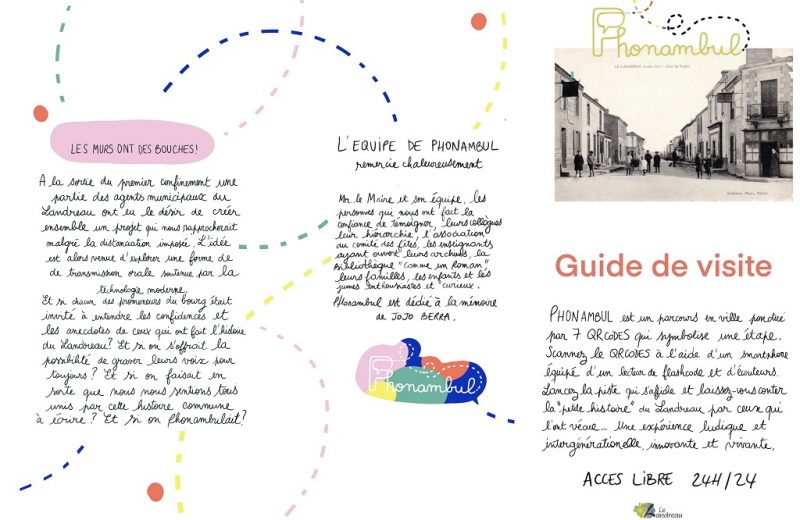 LES MURS ONT DES BOUCHES!
A la sortie du premier confinement une
partie des agents municipaux du
Landreau ont eu le désir de créer
ensemble un projet qui nous rapprocherait
malgré la distanciation imposée. L'idée
est alors venue d'explorer une forme de
de transmission orale soutenue par la
technologie moderne.
Et si chacun des promeneurs du bourg était
invité à entendre les confidences et
les anecdotes de ceux qui ont fait l'histoire
du Landreau? Et si on s'offrait la
possibilité de graver leurs voix pour
toujours? Et si on faisait en
sorte que nous nous sentions tous
unis par cette histoire commune
à écrire? Et si on phonambulait?
L'EQUIPE DE PHONAMBUL
remercie chaleureusement
Mr le Maire et son équipe, les
personnes qui nous ont fait la
confiance de témoigner, leurs collègues
leur hiérarchie, l'association
du comité des fêtes, les enseignants
ayant ouvert leurs archives, la
Bibliothèque "comme un Roman",
leurs familles, les enfants et les
jeunes enthousiastes et curieux.
Phonambul est dédié à la mémoire
de JOJO BERRA.
Phonambul
Phonambul
LE LANDREAU
Guide de visite
PHONAMBUL est un parcours en ville ponctué
par 7 QRCODES qui symbolise une étape.
Scannez le QRCODES à l'aide d'un smartphone
équipé d'un lecteur de flashcode et d'écouteurs.
Lancez la piste qui s'affiche et laissez-vous conter
la "petite histoire" du Landreau par ceux qui
l'ont vécue... Une expérience ludique et
intergénérationelle, innovante et vivante.
ACCES LIBRE 24H/24
Le
Landreau